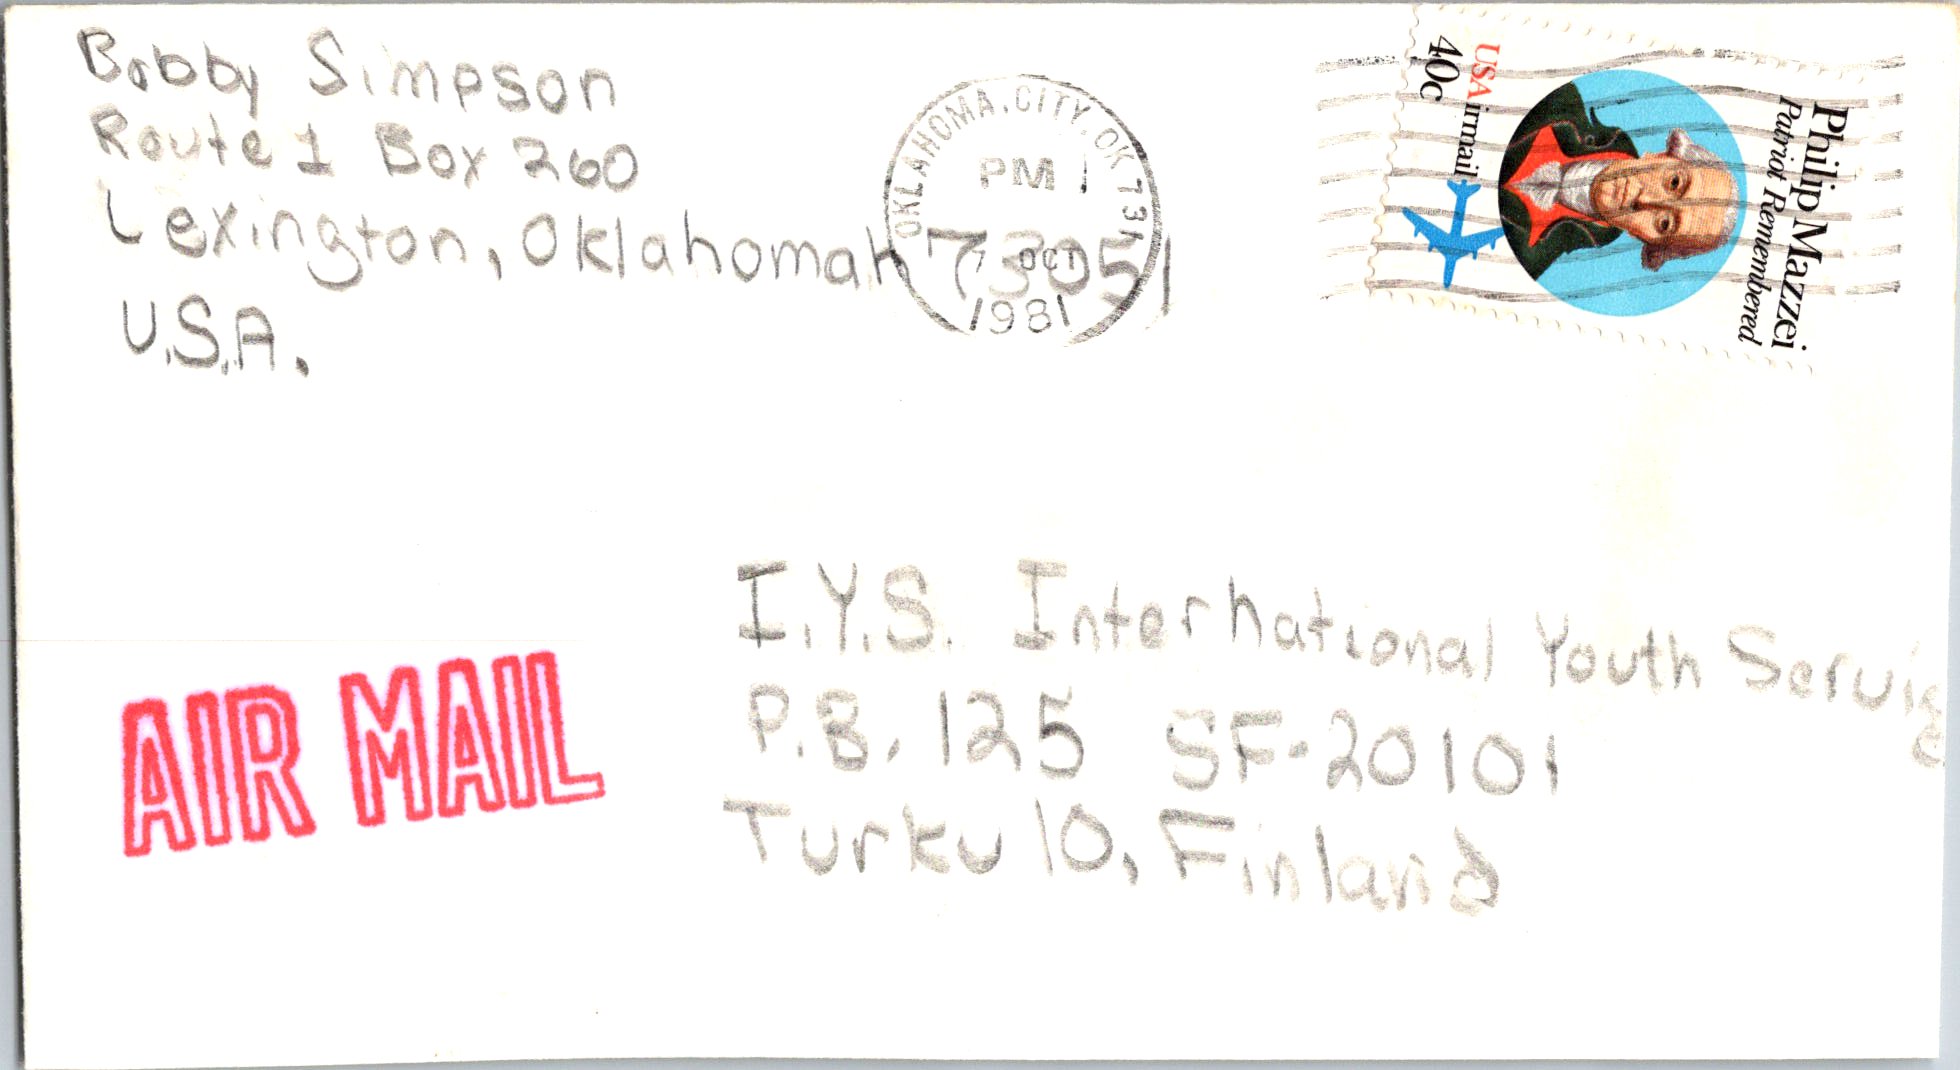 Bobby Simpson
Route 1 Box 260
Lexington, Oklahomah 73051
U.S.A.
OKLAHOMA, CITY, OK 731
PM
7 OCT
1981
USA irmail
40c
Philip Mazzei
Patriot Remembered
I.Y.S. International Youth Service
P.B. 125 SF-20101
Turku 10, Finland
AIR MAIL